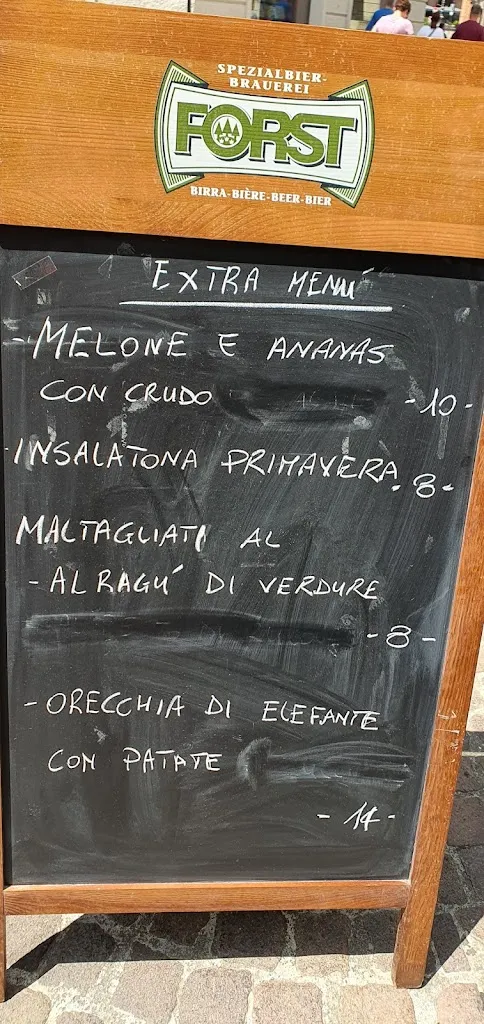 SPEZIALBIER-
BRAUEREI
FORST
BIRRA-BIÈRE-BEER-BIER
EXTRA MENÙ
- MELONE E ANANAS
CON CRUDO - 10 -
- INSALATONA PRIMAVERA - 8 -
MALTAGLIATI AL
- AL RAGU' DI VERDURE
- 8 -
- ORECCHIA DI ELEFANTE
CON PATATE
- 14 -